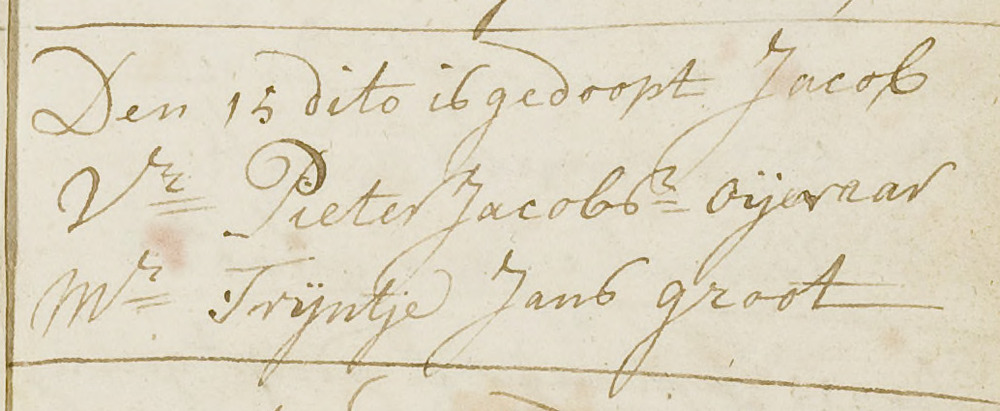 Den 15 dito is gedoopt Jacob
Vr Pieter Jacobsz oijevaar
Mr Trijntje Jans groot